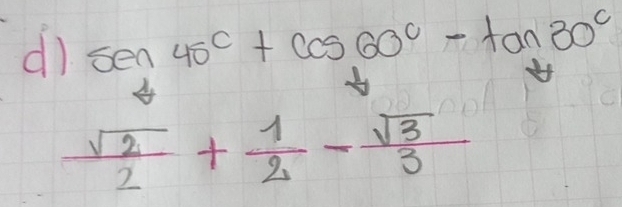 d) sen 45° + cos 60° - tan 30°
↓ ↓ ↓
√2/2 + 1/2 - √3/3